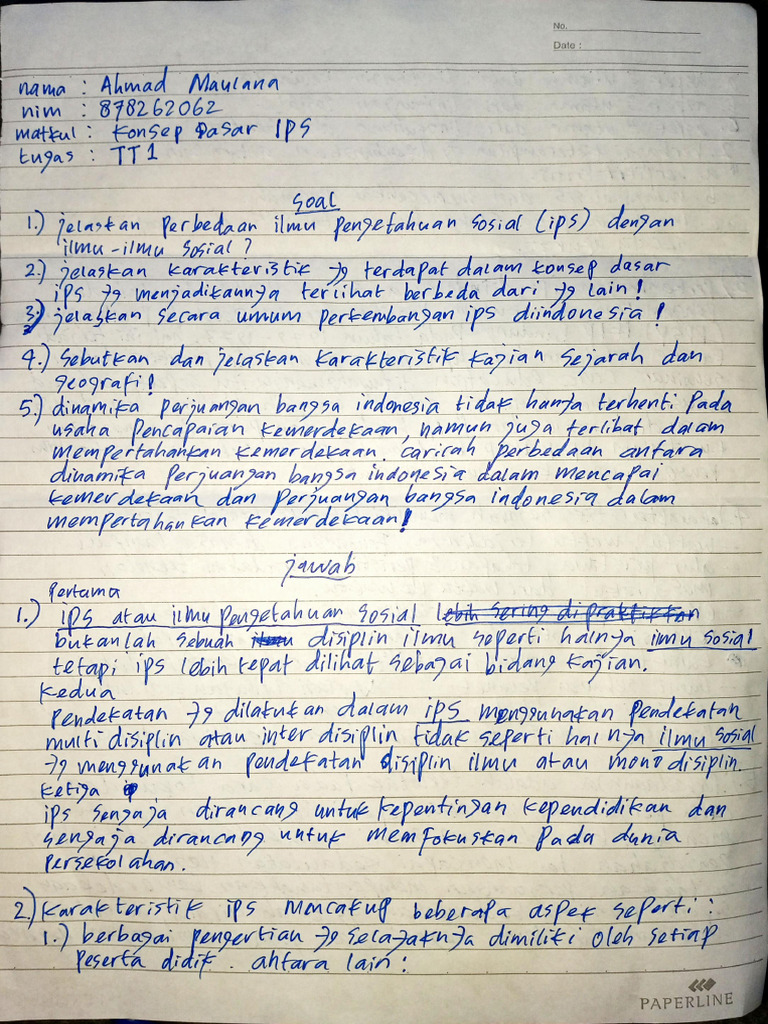 No.
Date :
nama : Ahmad Maulana
nim : 878262062
matkul : Konsep Dasar IPS
tugas : TT1
Soal
1.) jelaskan perbedaan ilmu pengetahuan sosial (ips) dengan
ilmu-ilmu sosial?
2.) jelaskan karakteristik yg terdapat dalam konsep dasar
ips yg menjadikannya terlihat berbeda dari yg lain!
3.) jelaskan secara umum perkembangan ips diindonesia!
4.) Sebutkan dan jelaskan karakteristik kajian sejarah dan
geografi!
5.) dinamika perjuangan bangsa indonesia tidak hanya terhenti pada
usaha pencapaian kemerdekaan, namun juga terlibat dalam
mempertahankan kemerdekaan. carilah perbedaan antara
dinamika perjuangan bangsa indonesia dalam mencapai
kemerdekaan dan perjuangan bangsa indonesia dalam
mempertahankan kemerdekaan!
jawab
Pertama
1.) ips atau ilmu pengetahuan sosial lebih sering dipraktikkan
bukanlah sebuah ilmu disiplin ilmu seperti halnya ilmu sosial
tetapi ips lebih tepat dilihat sebagai bidang kajian.
Kedua
Pendekatan yg dilakukan dalam ips menggunakan pendekatan
multi disiplin atau inter disiplin tidak seperti hal nya ilmu sosial
yg menggunakan pendekatan disiplin ilmu atau mono disiplin.
Ketiga
ips sengaja dirancang untuk kepentingan kependidikan dan
sengaja dirancang untuk memfokuskan pada dunia
persekolahan.
2.) Karakteristik ips mencakup beberapa aspek seperti :
1.) berbagai pengertian yg selayaknya dimiliki oleh setiap
peserta didik. antara lain :
PAPERLINE